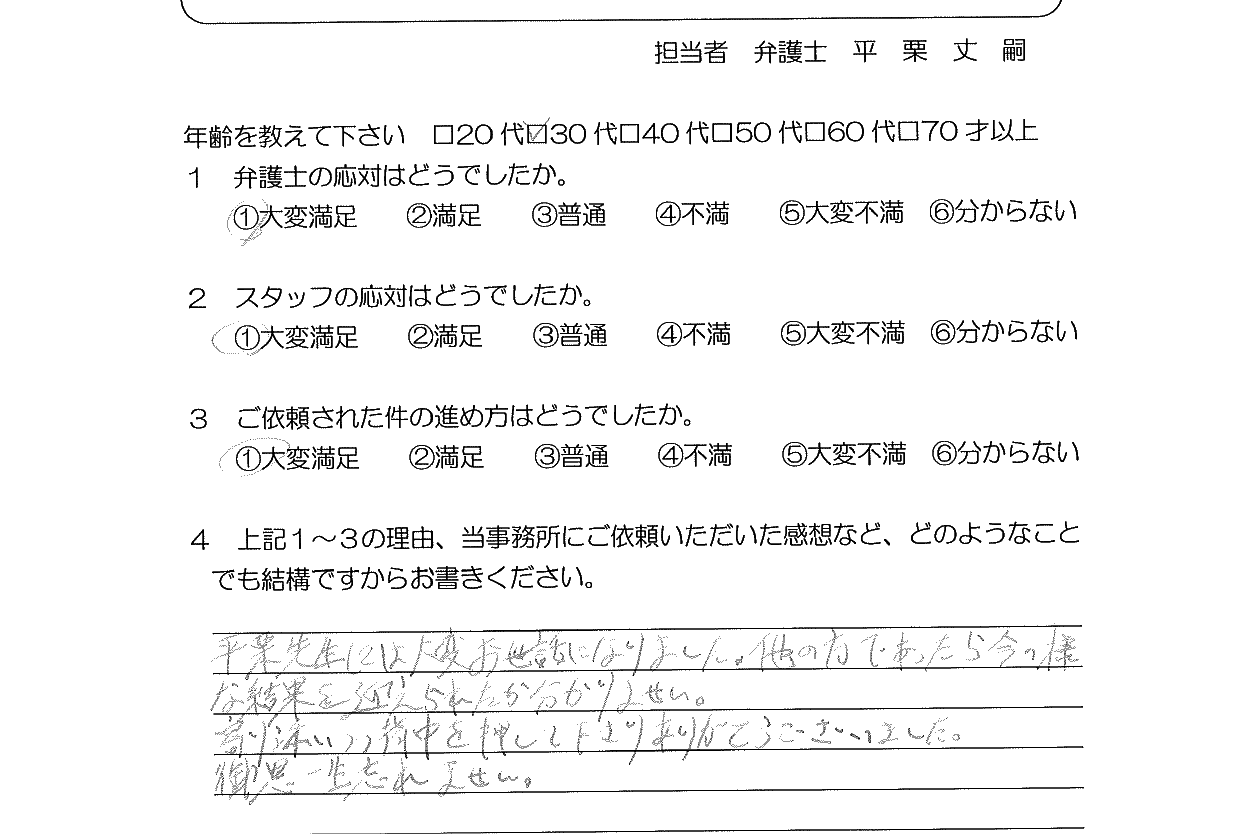 担当者　弁護士　平　栗　丈　嗣
年齢を教えて下さい　□20代☑30代□40代□50代□60代□70才以上
１　弁護士の応対はどうでしたか。
①大変満足　②満足　③普通　④不満　⑤大変不満　⑥分からない
２　スタッフの応対はどうでしたか。
①大変満足　②満足　③普通　④不満　⑤大変不満　⑥分からない
３　ご依頼された件の進め方はどうでしたか。
①大変満足　②満足　③普通　④不満　⑤大変不満　⑥分からない
４　上記１～３の理由、当事務所にご依頼いただいた感想など、どのようなこと
でも結構ですからお書きください。
平栗先生には大変お世話になりました。他の方であったら今の様
な結果を迎えられたか分かりません。
寄り添いつつ背中を押して下さりありがとうございました。
御恩一生忘れません。